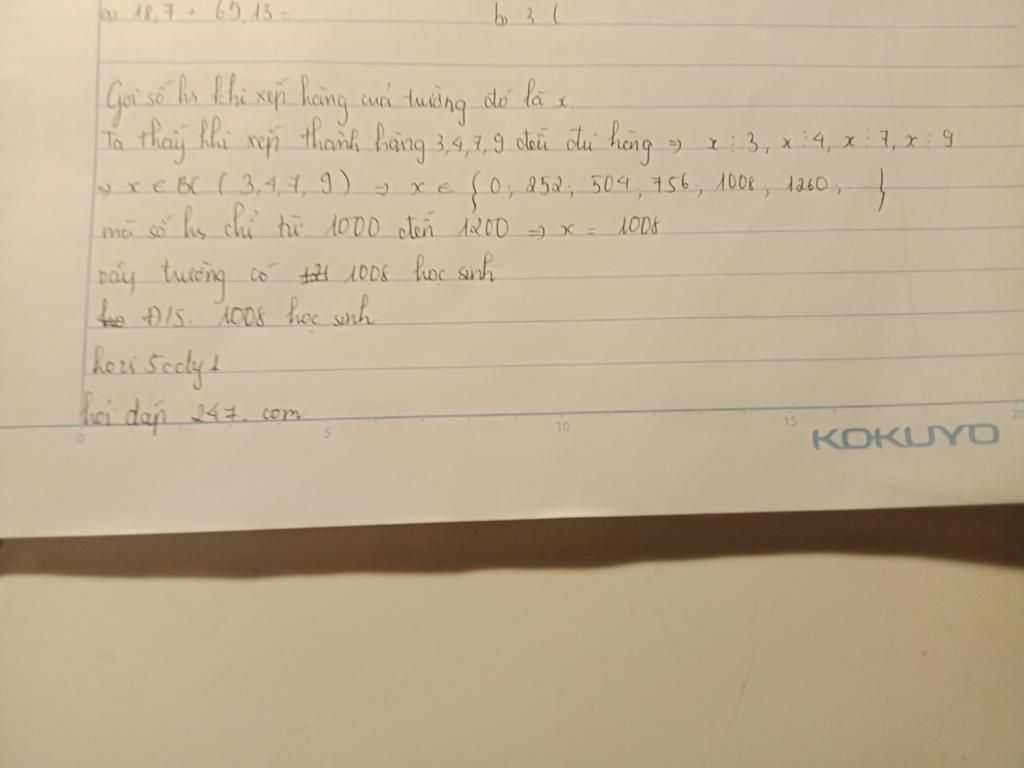 a) 18,7 + 69,13 = b) 3 (
Gọi số hs khi xếp hàng cuả trường đó là x.
Ta thấy khi xếp thành hàng 3,4,7,9 đều đủ hàng => x ⋮ 3, x ⋮ 4, x ⋮ 7, x ⋮ 9
=> x ∈ BC ( 3,4,7,9 ) => x ∈ { 0; 252; 504; 756; 1008; 1260; }
mà số hs chỉ từ 1000 đến 1200 => x = 1008
vậy trường có 1008 học sinh
Đ/S. 1008 học sinh
hoidap 247. com
0 5 10 15 20
KOKUYO